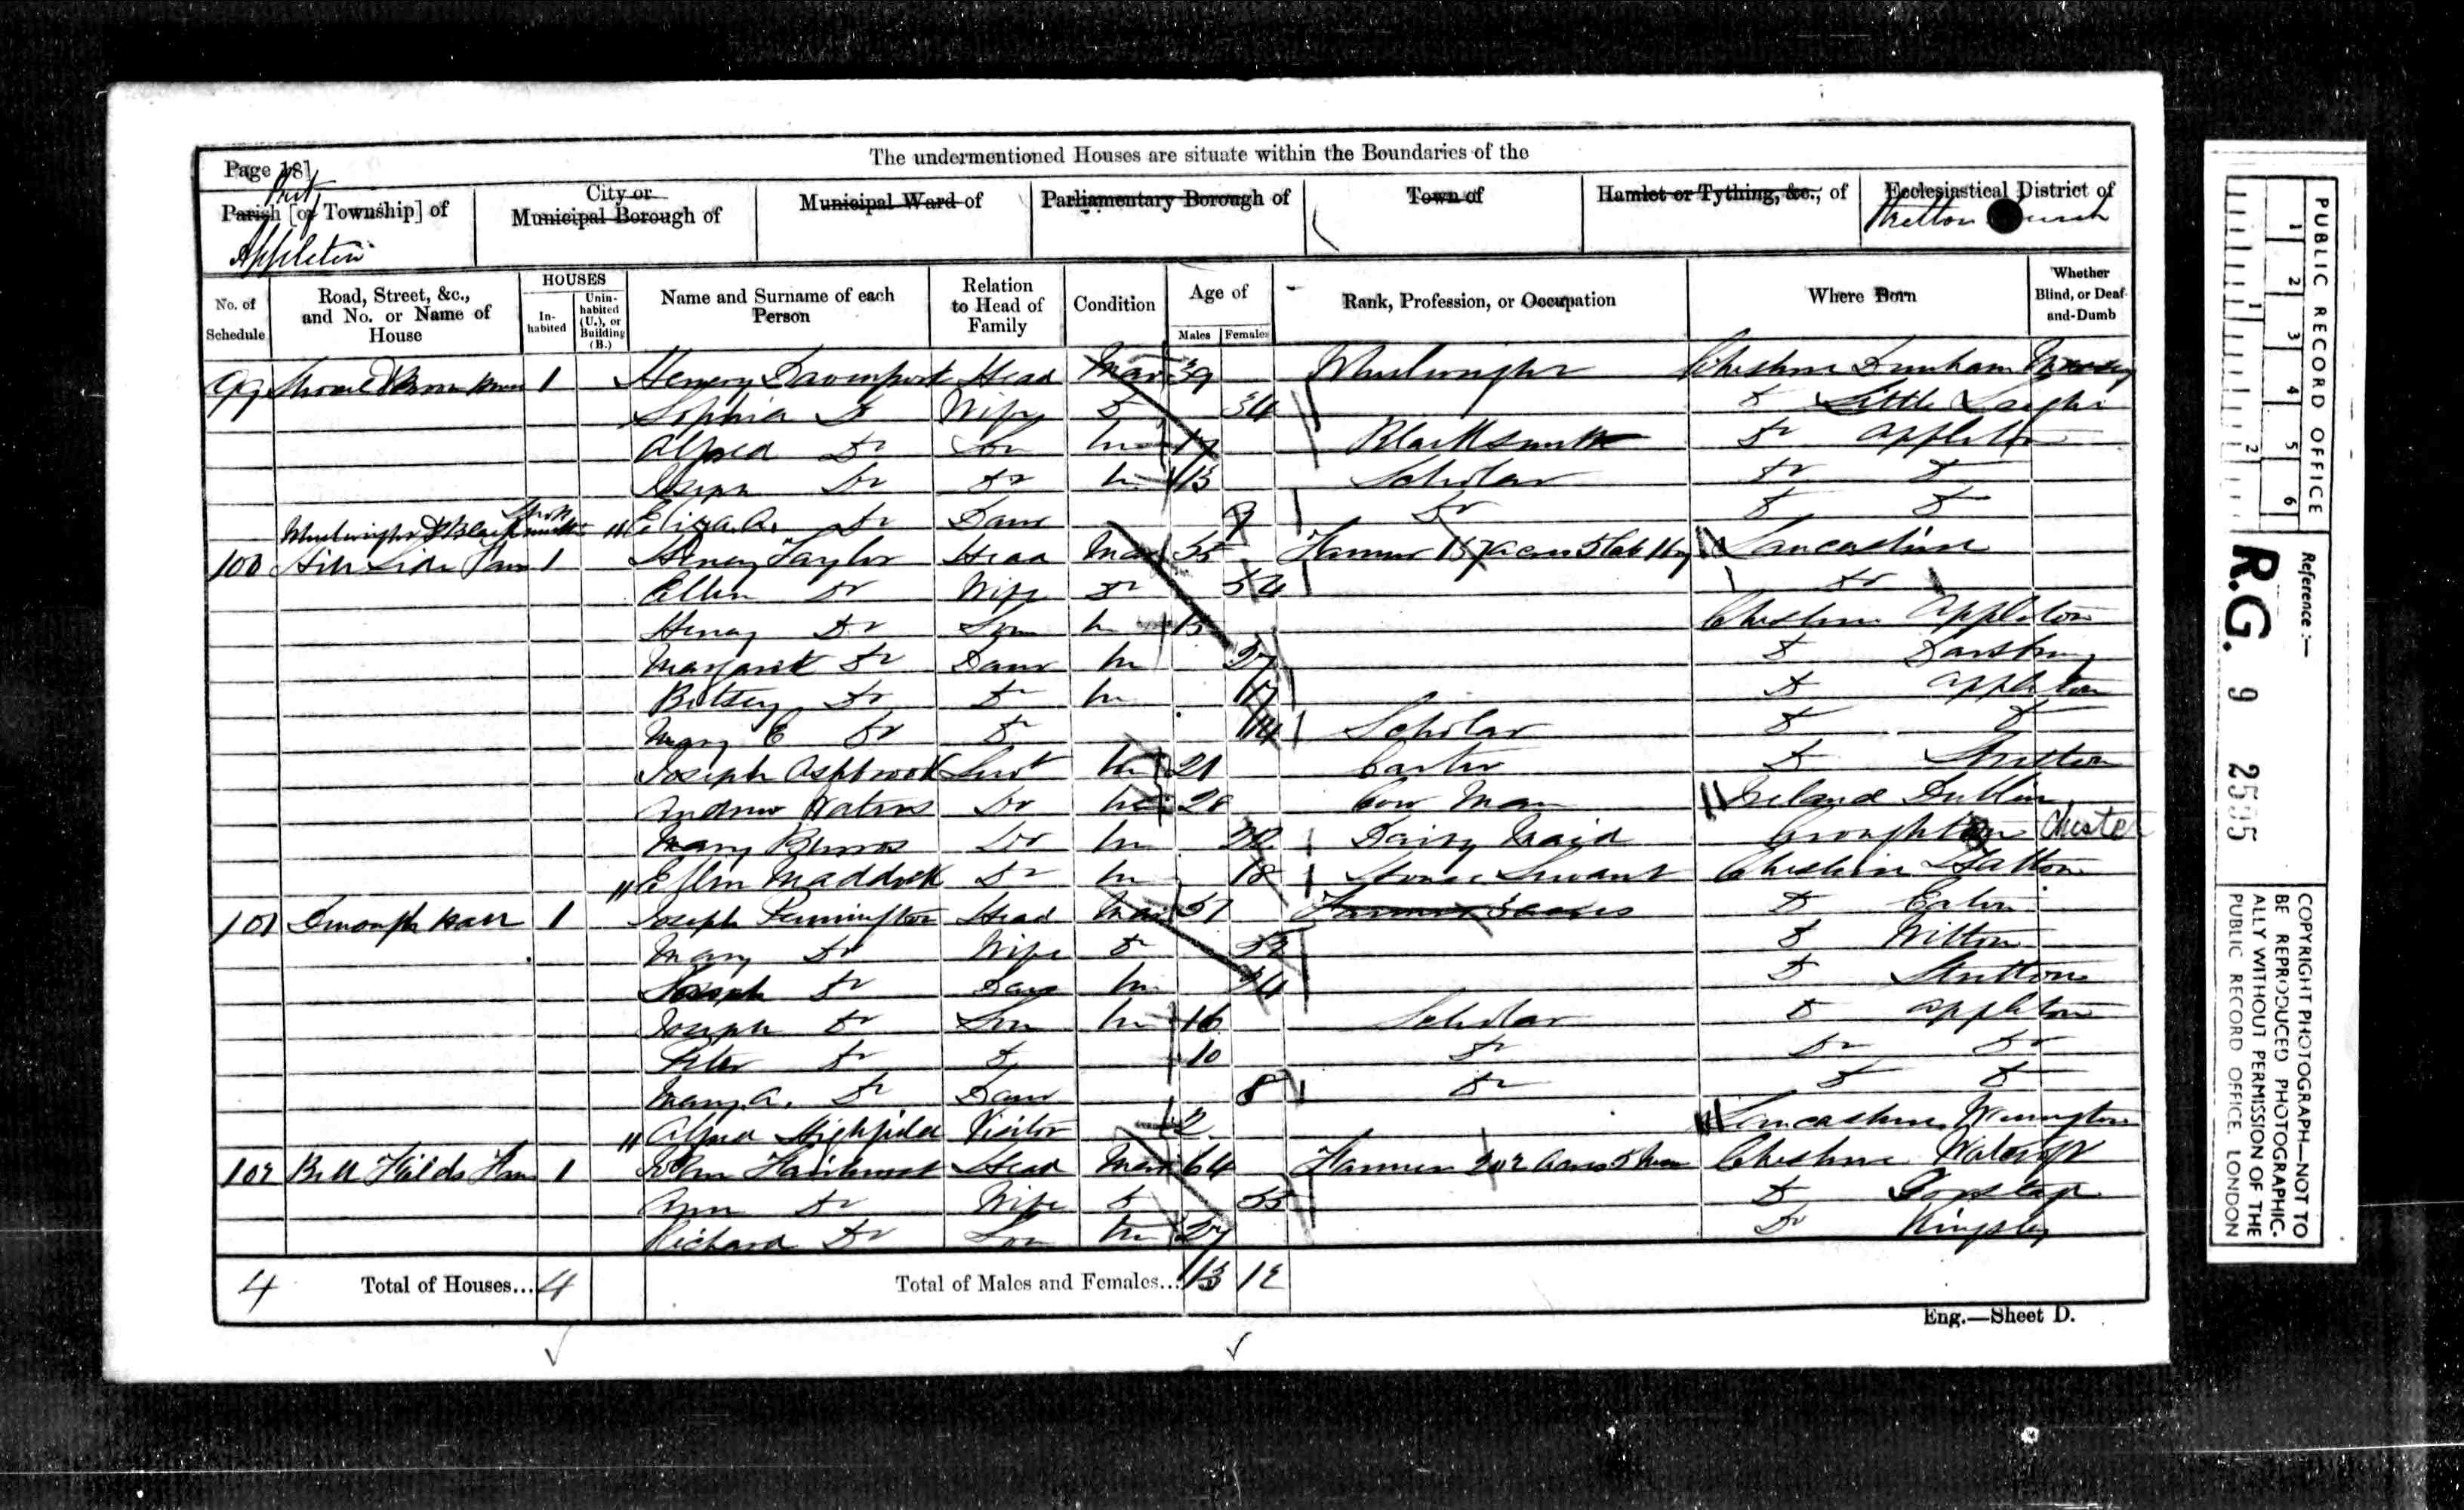 The undermentioned Houses are situate within the Boundaries of the
Page 18]
Part
Parish [or Township] of
Appleton
City or Municipal Borough of
Municipal Ward of
Parliamentary Borough of
Town of
Hamlet or Tything, &c., of
Ecclesiastical District of
Stretton Church
No. of Schedule
Road, Street, &c., and No. or Name of House
HOUSES
In-habited
Unin-habited (U.), or Building (B.)
Name and Surname of each Person
Relation to Head of Family
Condition
Age of
Males
Females
Rank, Profession, or Occupation
Where Born
Whether Blind, or Deaf-and-Dumb
99 1 Henery Davenport Head Mar 39 Wheelwright Cheshire Dunham Massey
Sophia Do Wife Do 34 Do Little Leigh
Alfred Do Son Un 17 Blacksmith Do Appleton
Joseph Do Do Un 13 Scholar Do Do
Wheelwright & Blacksmith Shop Eliza. A. Do Daur 9 Do Do Do
100 Hill Side Farm 1 Henery Taylor Head Mar 55 Farmer 157 acres 5 Lab Lancashire
Ellen Do Wife Do 54 Do
Henry Do Son Un 15 Cheshire Appleton
Margaret Do Daur Un 27 Do Darsbury
Betsey Do Do Un 17 Do Appleton
Mary E Do Do 14 Scholar Do Do
Joseph Ashbrook Servt Un 21 Carter Do Stretton
Andrew Waters Do Un 28 Cow Man Ireland Dublin
Mary Burros Do Un 30 Dairy Maid Groughton Chester
Ellen Maddock Do Un 18 House Servant Cheshire Hatton
101 Hall 1 Joseph Pennington Head Mar 57 Farmer acres Do
Mary Do Wife Do 52 Do Witton
Do Daur Un 24 Do Stretton
Joseph Do Son Un 16 Scholar Do Appleton
Peter Do Do 10 Do Do Do
Mary. A. Do Daur 8 Do Do Do
Alfred Highfield Visitor 2 Lancashire Warrington
102 Bell Fields Farm 1 John Fairhurst Head Mar 64 Farmer 202 Acres Cheshire
Ann Do Wife Do 55 Do
Richard Do Son Un 27 Do Kingsley
4 Total of Houses... 4 Total of Males and Females... 13 12
Eng.—Sheet D.
PUBLIC RECORD OFFICE
1 2 3 4 5 6
1 2
Reference :—
R.G. 9 2595
COPYRIGHT PHOTOGRAPH—NOT TO BE REPRODUCED PHOTOGRAPHIC-
ALLY WITHOUT PERMISSION OF THE PUBLIC RECORD OFFICE, LONDON